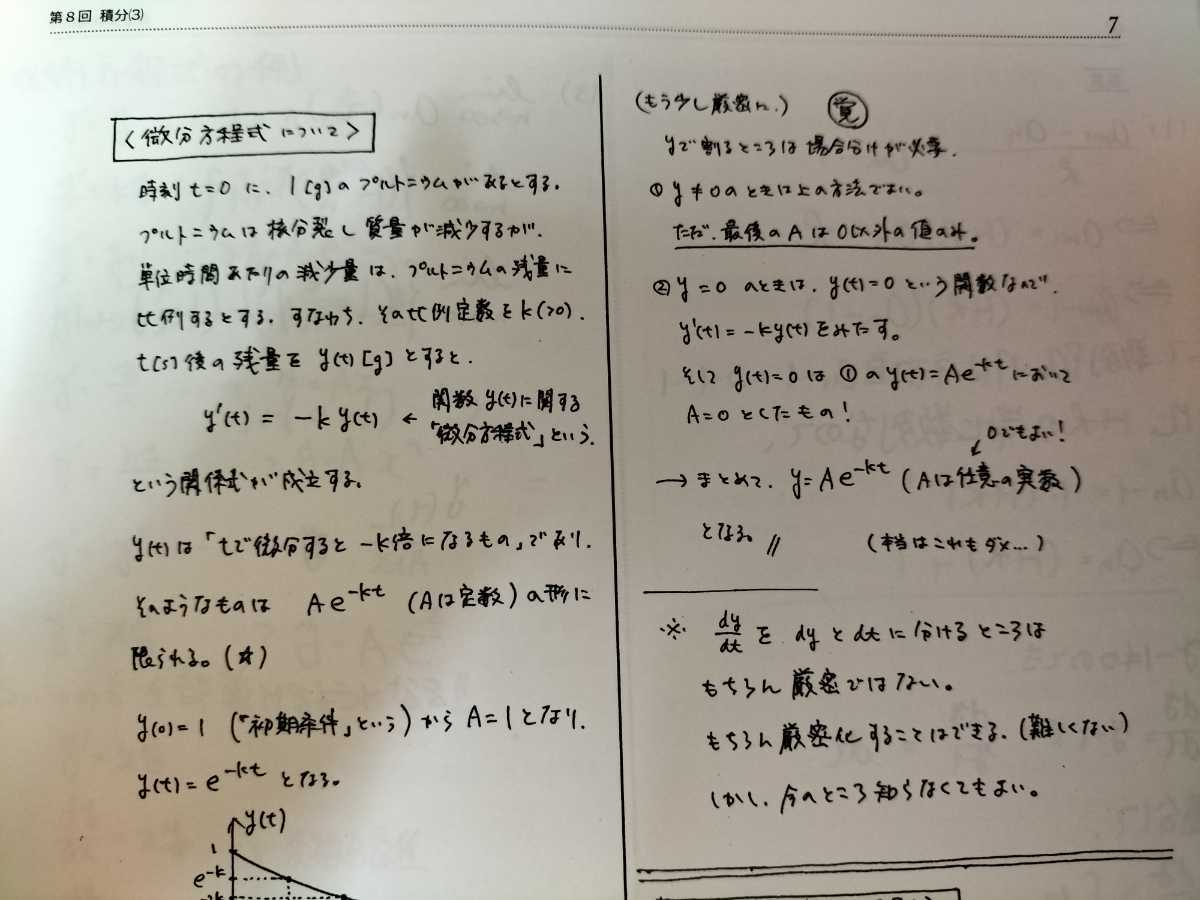 第8回 積分(3)
7
<微分方程式について>
時刻 t=0 に、1[g]のプルトニウムがあるとする。
プルトニウムは核分裂し質量が減少するが、
単位時間あたりの減少量は、プルトニウムの残量に
比例するとする。すなわち、その比例定数をk(>0)、
t[s]後の残量を y(t)[g]とすると、
y'(t) = -k y(t) ← 関数 y(t)に関する
「微分方程式」という。
という関係式が成立する。
y(t)は「tで微分すると -k倍になるもの」であり、
そのようなものは Ae^{-kt} (Aは定数)の形に
限られる。(☆)
y(0)=1 (「初期条件」という)から A=1となり、
y(t)=e^{-kt} となる。
y(t)
1
e^{-k}
(もう少し厳密に、) 覚
yで割るところは場合分けが必要。
① y≠0のときは上の方法でよい。
ただ、最後のAは0以外の値のみ。
② y=0 のときは、y(t)=0という関数なので、
y'(t)=-ky(t)をみたす。
そして y(t)=0は①の y(t)=Ae^{-kt}において
A=0としたもの!
0でもよい!
→ まとめて、y=Ae^{-kt} (Aは任意の実数)
となる。//
(本当はこれもダメ…)
※ dy/dt を dyとdtに分けるところは
もちろん厳密ではない。
もちろん厳密化することはできる。(難しくない)
しかし、今のところ知らなくてもよい。